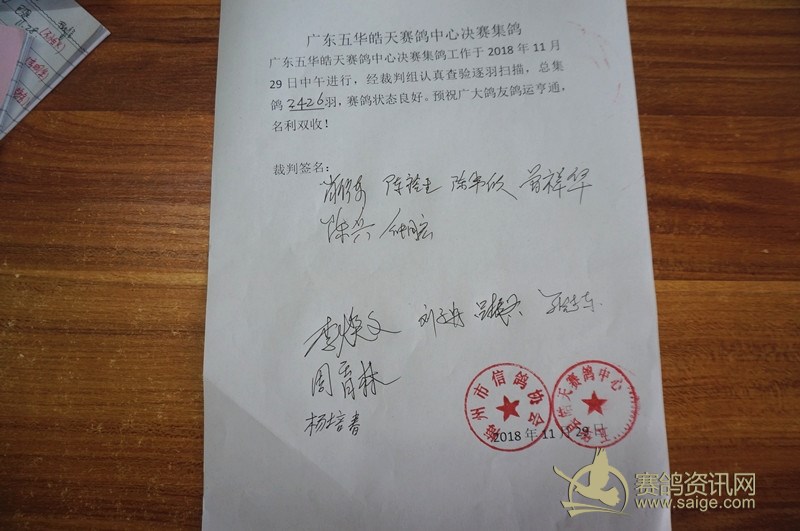 广东五华皓天赛鸽中心决赛集鸽
广东五华皓天赛鸽中心决赛集鸽工作于 2018 年 11 月
29 日中午进行，经裁判组认真查验逐羽扫描，总集
鸽 2426羽，赛鸽状态良好。预祝广大鸽友鸽运亨通，
名利双收！
裁判签名：
曾祥华
陈兴
李焕文
周育林
杨培春
州市信鸽协会
皓天赛鸽中心
2018 年 11 月 29 日
赛鸽资讯网
www.saige.com